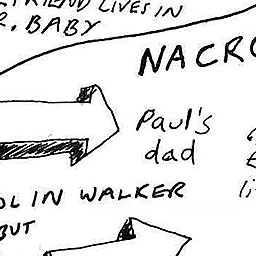 LIVES IN
R. BABY
NACRO
Paul's
dad
OLIN WALKER
BUT